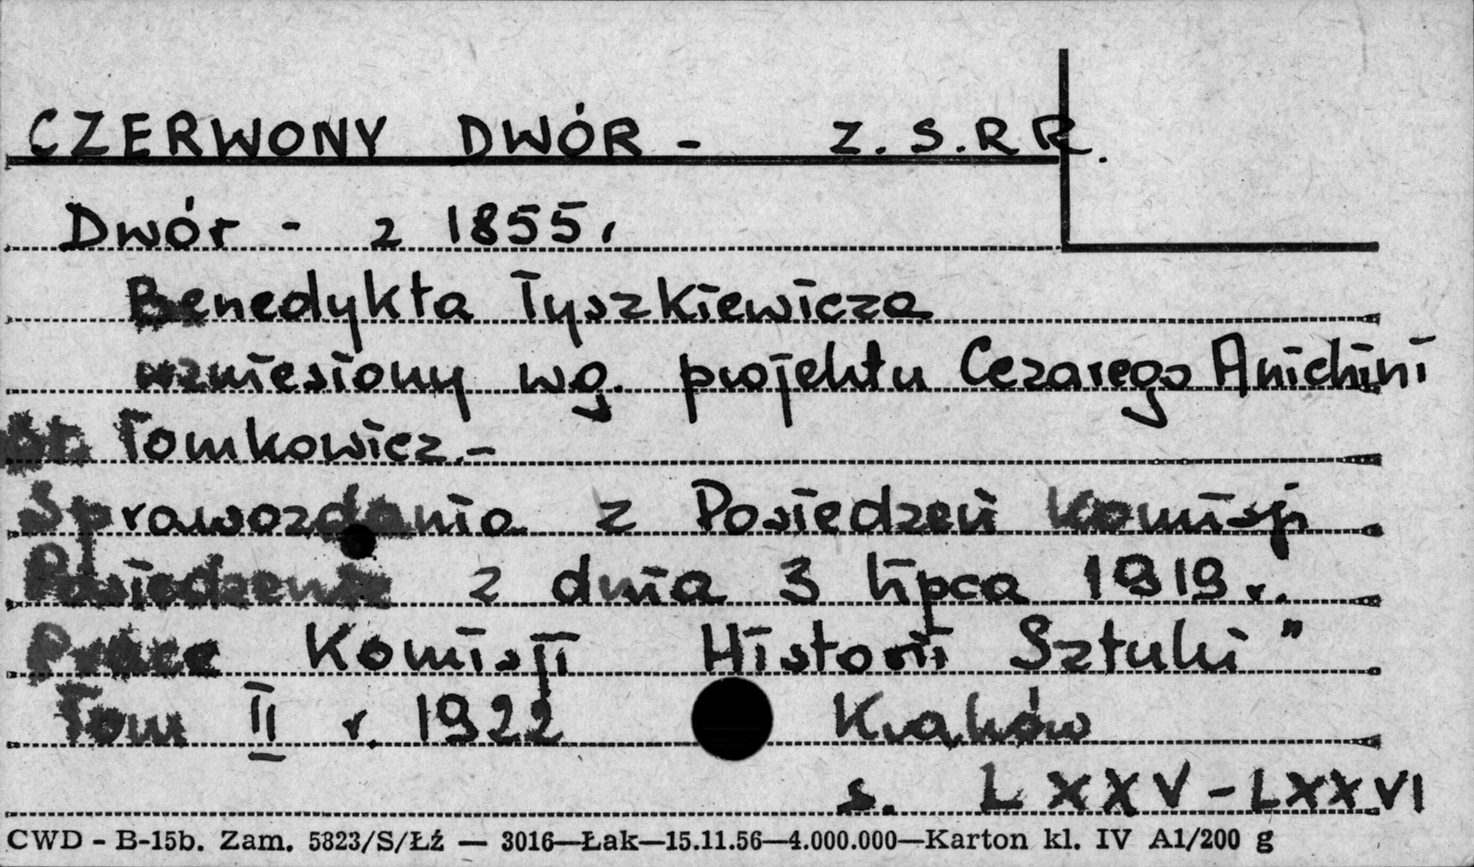 CZERWONY DWÓR - Z.S.R.R.
Dwór - z 1855r
Benedykta Tyszkiewicza
wzniesiony wg. projektu Cezarego Anichini
St. Tomkowicz.-
Sprawozdania z Posiedzeń Komisji
Posiedzenie z dnia 3 lipca 1919 r.
Prace Komisji Historii Sztuki"
Tom II r. 1922 Kraków
s. LXXV-LXXVI
CWD - B-15b. Zam. 5823/S/Łź — 3016—Łak—15.11.56—4.000.000—Karton kl. IV A1/200 g